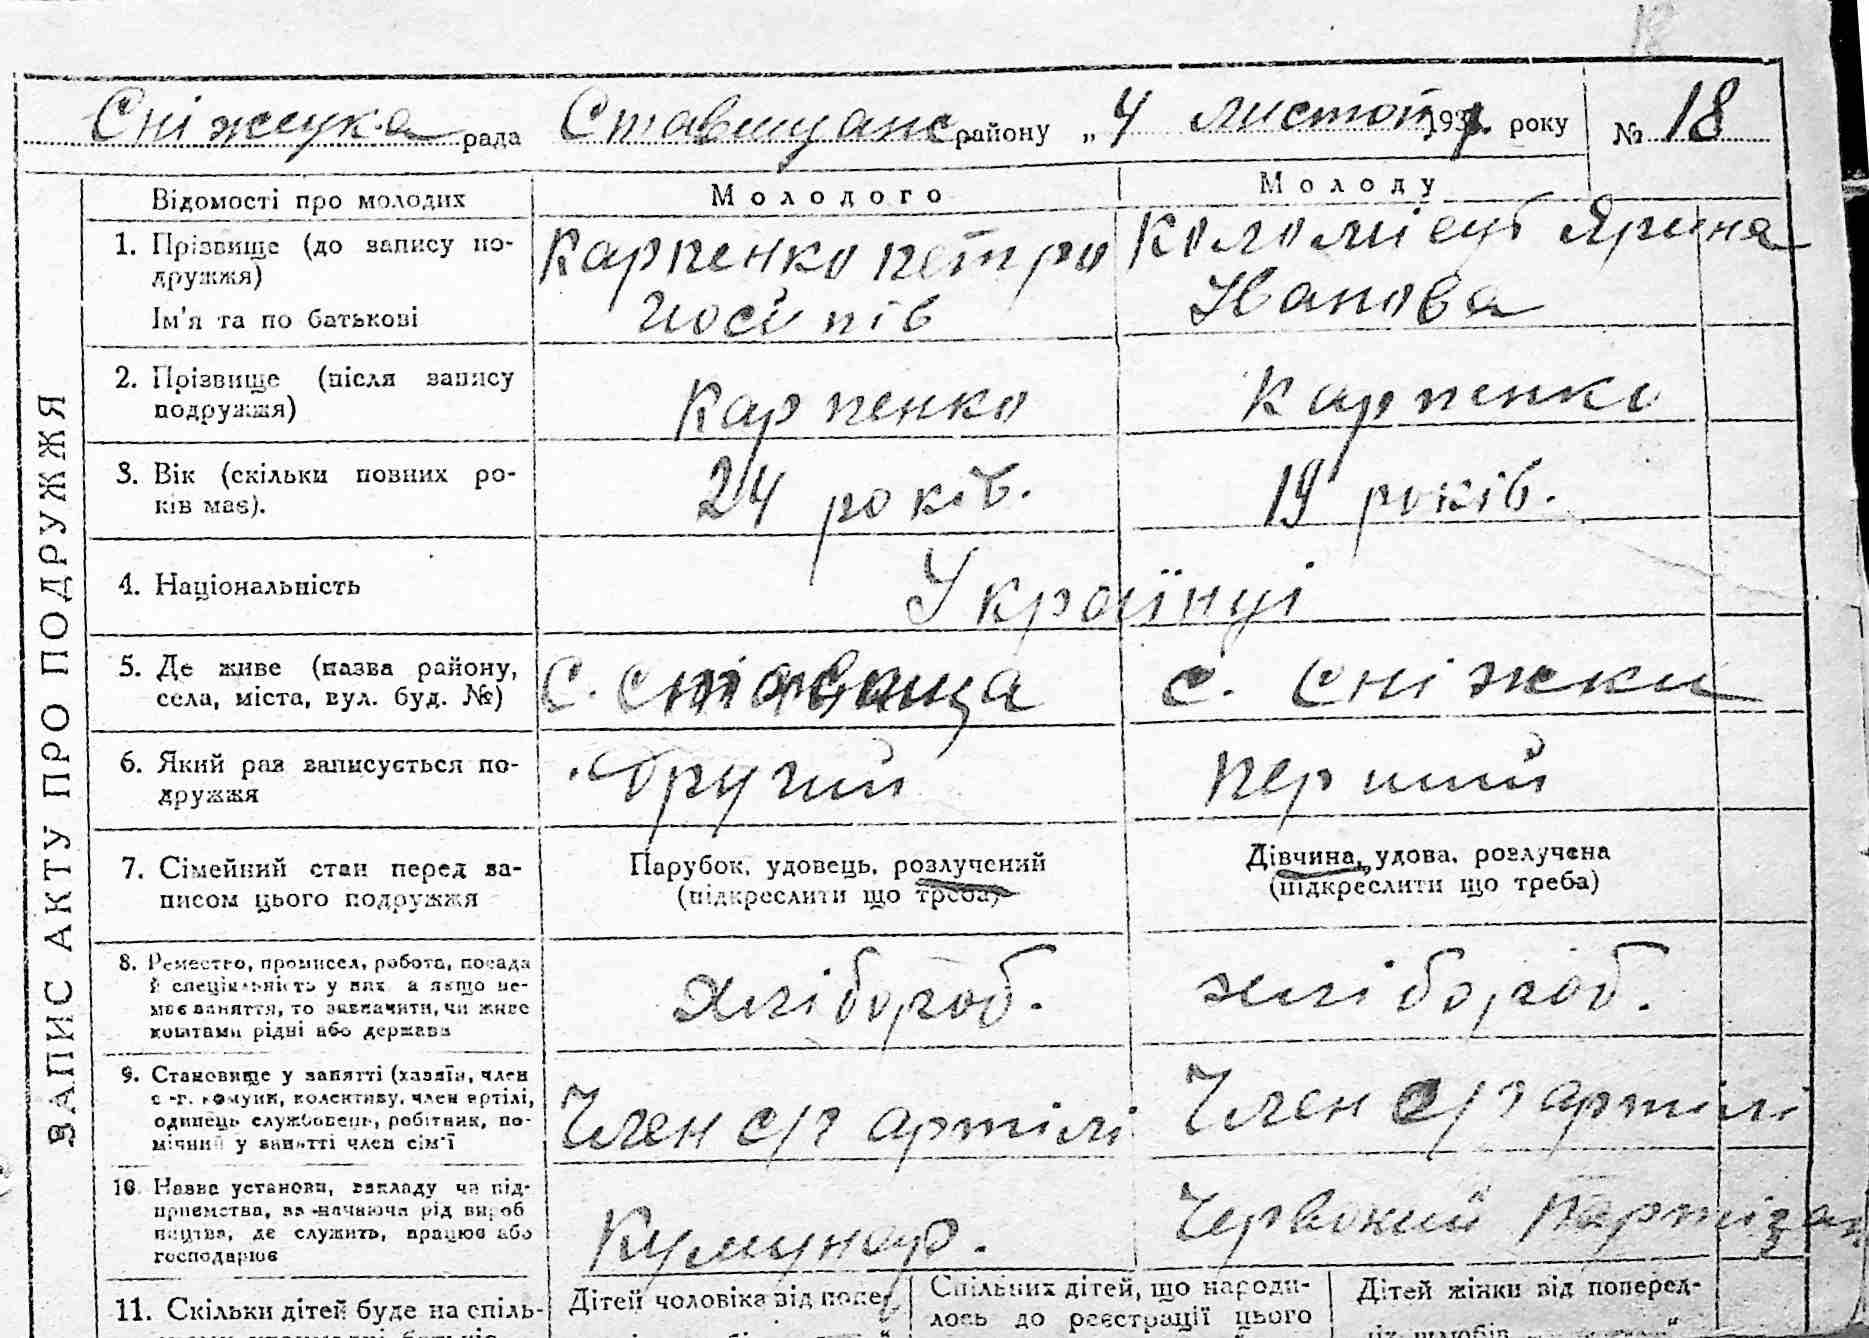 18
Сніжецка рада Ставищанс району „ 4 листоп 193 року № 18
ЗАПИС АКТУ ПРО ПОДРУЖЖЯ
Відомості про молодих
Молодого
Молоду
1. Прізвище (до запису по-
дружжя)
Ім'я та по батькові
Карпенко петро
Йосипів
Коломієць Ярина
Іванова
2. Прізвище (після запису
подружжя)
Карпенко
Карпенко
3. Вік (скільки повних ро-
ків має).
24 років.
19 років.
4. Національність
Українці
5. Де живе (назва району,
села, міста, вул. буд. №)
С. Ставища
с. Сніжки
6. Який раз записується по-
дружжя
Другий
перший
7. Сімейний стан перед за-
писом цього подружжя
Парубок, удовець, розлучений
(підкреслити що треба)
Дівчина, удова, розлучена
(підкреслити що треба)
8. Ремество, промисел, робота, посада
й спеціяльність у них, а якщо не-
має заняття, то зазначити, чи живе
коштами рідні або держави
хлібороб.
хлібороб.
9. Становище у занятті (хазяїн, член
с.-г. комуни, колективу, член артілі,
одинець службовець, робітник, по-
мічний у занятті член сім'ї
Член с/г артілі
Член с/г артілі
10. Назва установи, закладу чи під-
приємства, зазначаючи рід вироб
ництва, де служить, працює або
господарює
Кумунар.
Червоний Партізан
11. Скільки дітей буде на спіль-
Дітей чоловіка від попе
Спільних дітей, що народи-
лось до реєстрації цього
Дітей жінки від поперед-
ніх шлюбів